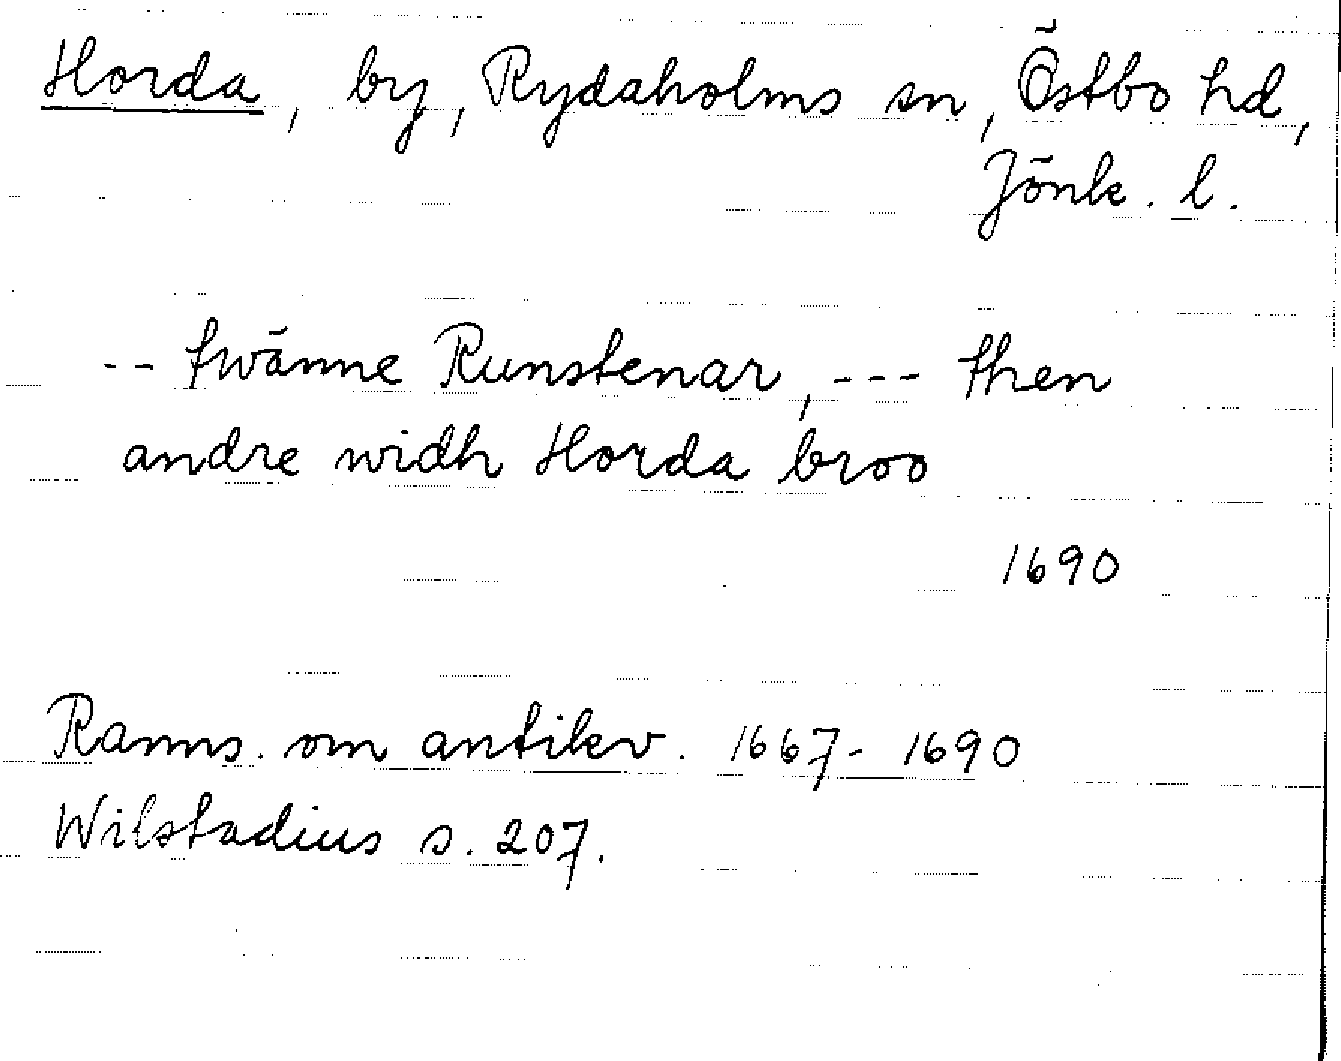 Horda, by, Rydaholms sn, Östbo hd,
Jönk. l.
-- twänne Runstenar, --- then
andre widh Horda broo
1690
Ranns. om antikv. 1667-1690
Wilstadius s. 207.